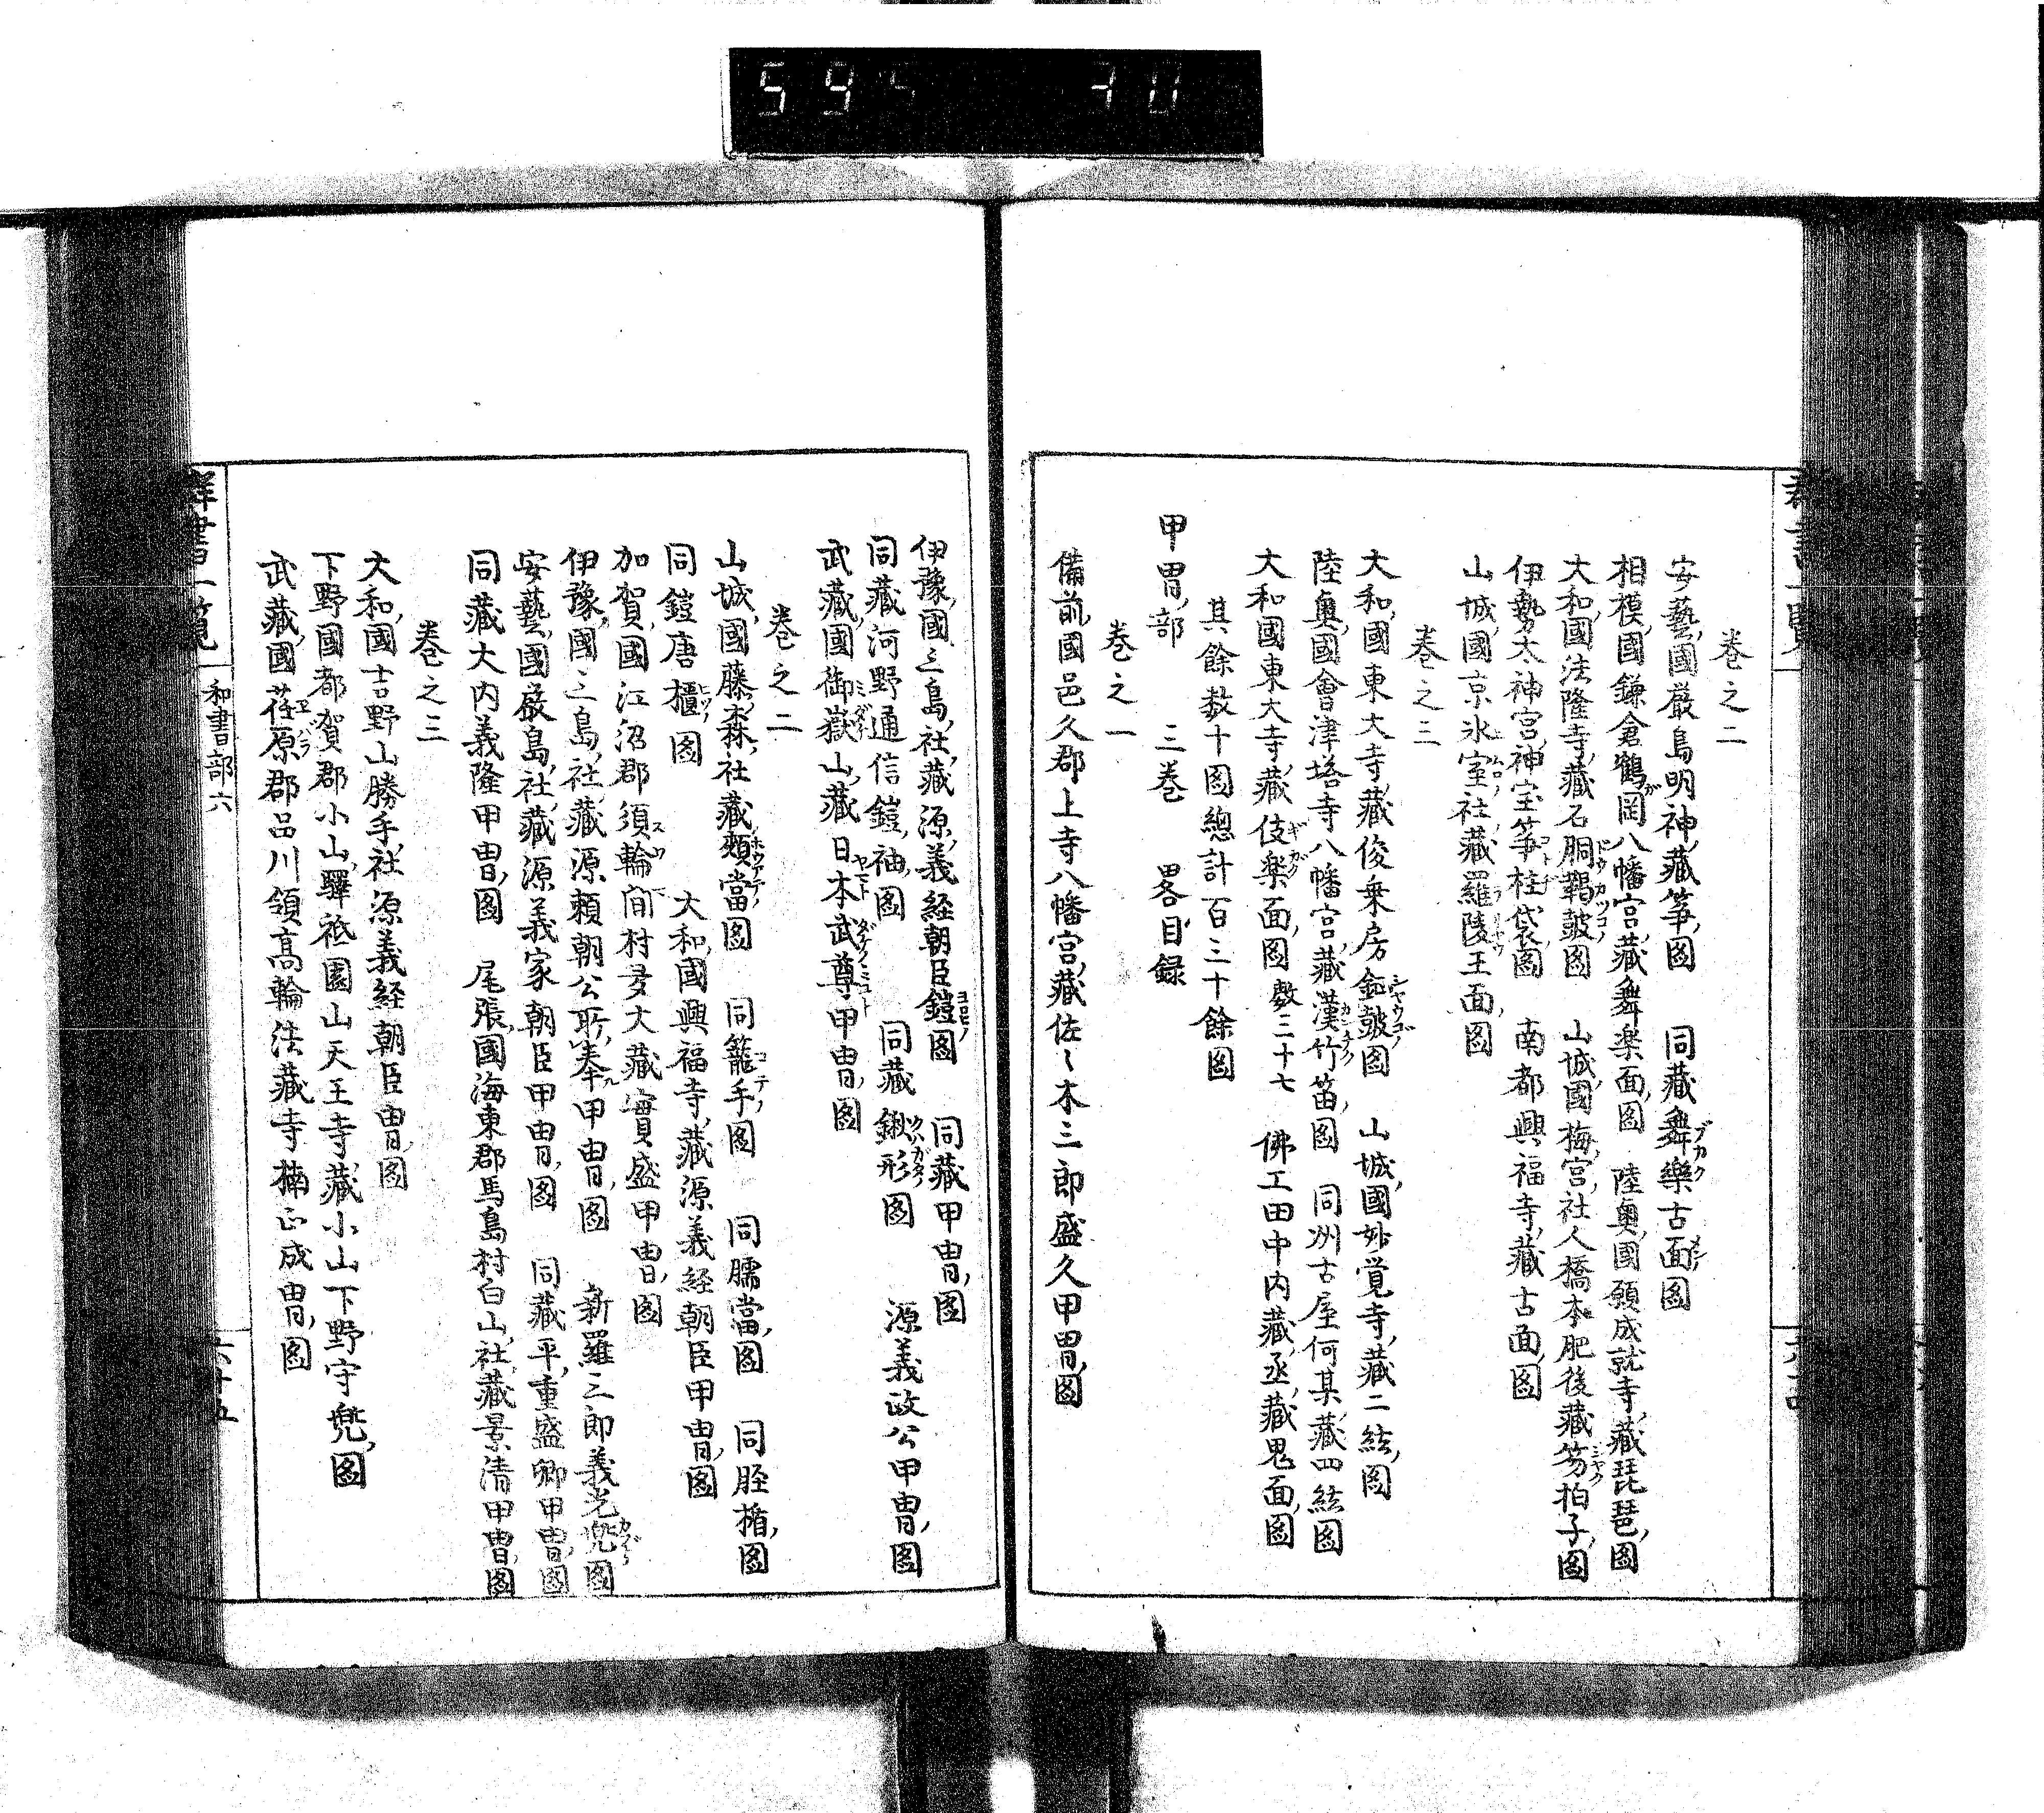 595 30
巻之二
安藝國嚴島明神藏箏圖　同藏舞樂古面圖
相模國鎌倉鶴岡八幡宮藏舞楽面圖　陸奥國願成就寺藏琵琶圖
大和國法隆寺藏石胴羯皷圖　山城國梅宮社人橋本肥後藏笏拍子圖
伊勢太神宮神宝箏柱袋圖　南都興福寺藏古面圖
山城國京氷室社藏羅陵王面圖
巻之三
大和國東大寺藏俊乗房鉦皷圖　山城國妙覚寺藏二絃圖
陸奥國會津塔寺八幡宮藏漢竹笛圖　同州古屋何某藏四絃圖
大和國東大寺藏伎楽面圖數二十七　佛工田中内藏丞藏鬼面圖
其餘数十圖總計百三十餘圖
甲冑部　三巻　畧目録
巻之一
備前國邑久郡上寺八幡宮藏佐々木三郎盛久甲冑圖
伊豫國三島社藏源義経朝臣鎧圖　同藏甲冑圖
同藏河野通信鎧袖圖　同藏鍬形圖　源義政公甲冑圖
武藏國御嶽山藏日本武尊甲冑圖
巻之二
山城國藤森社藏頬當圖　同籠手圖　同臑當圖　同脛楯圖
同鎧唐櫃圖　大和國興福寺藏源義経朝臣甲冑圖
加賀國江沼郡須輪間村多大藏實盛甲冑圖
伊豫國三島社藏源頼朝公所奉甲冑圖　新羅三郎義光兜圖
安藝國嚴島社藏源義家朝臣甲冑圖　同藏平重盛卿甲冑圖
同藏大内義隆甲冑圖　尾張國海東郡馬島村白山社藏景清甲冑圖
巻之三
大和國吉野山勝手社源義経朝臣冑圖
下野國都賀郡小山驛祗園山天王寺藏小山下野守兜圖
武藏國荏原郡品川領髙輪法藏寺楠正成冑圖
群書一覧　和書部六　六十五